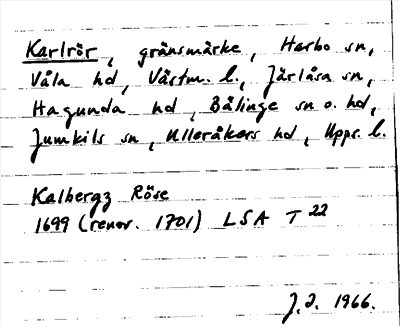 Karlrör, gränsmärke, Harbo sn,
Våla hd, Västm. l., Järlåsa sn,
Hagunda hd, Bälinge sn o. hd,
Jumkils sn, Ulleråkers hd, Upps. l.
Kalbergz Röse
1699 (renov. 1701) LSA T 22
J.2. 1966.